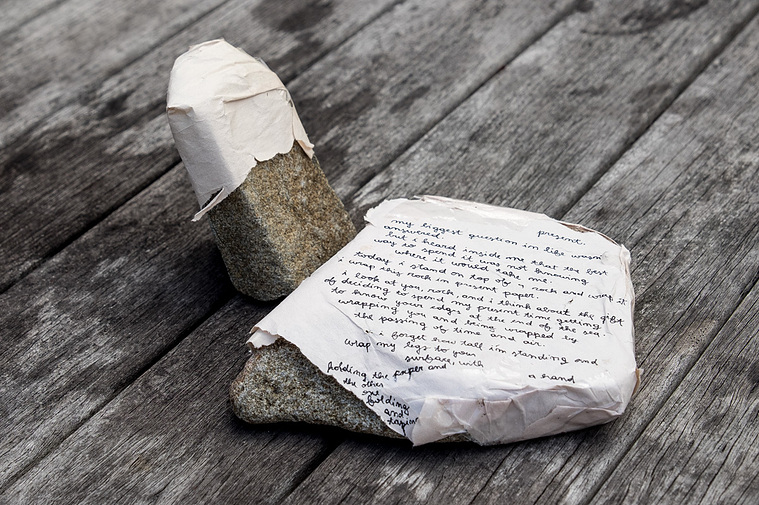 my biggest question in life wasn present.
answered.
but i heard inside me that the best
way to spend it was not knowing
where it would take me.
today i stand on top of a rock and wrap it
wrap this rock in present paper.
i look at you, rock, and i think about the gift
of deciding to spend my present time getting
to know your edges at the end of the sea.
wrapping you and being wrapped by
the passing of time and air.
i forget how tall im standing and
wrap my legs to your
surface with
holding the paper and a hand
the other
one
holding
and
taping